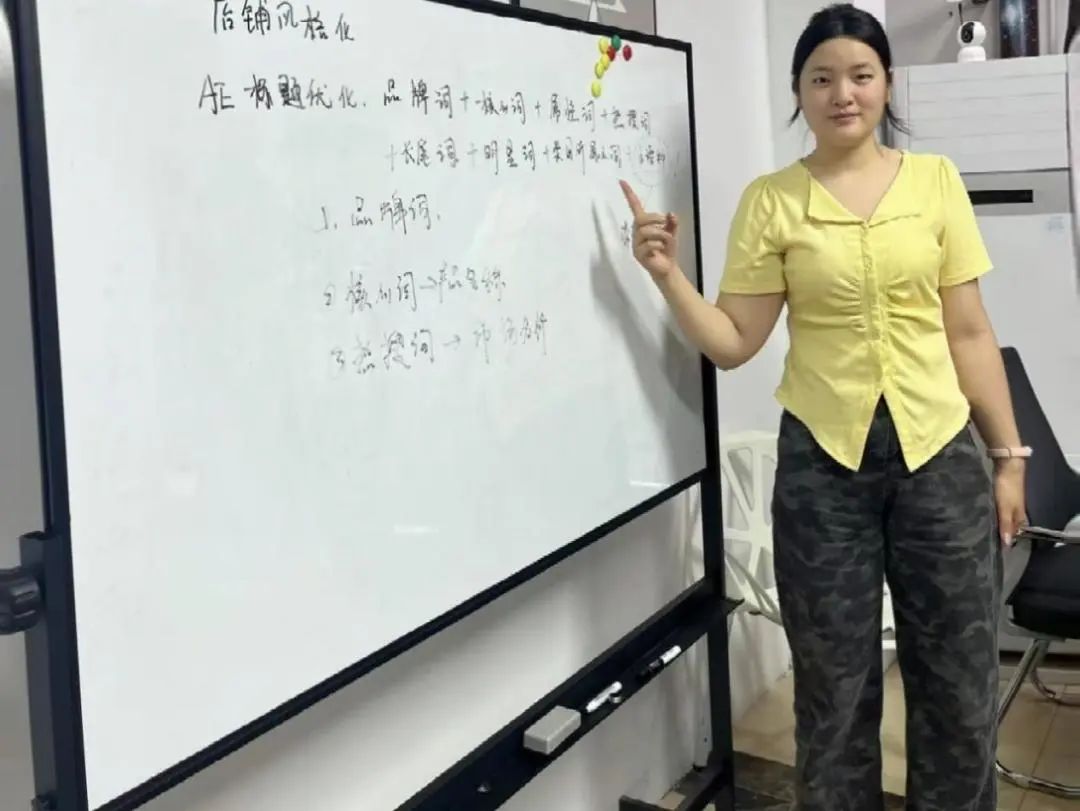 店铺风格化
AE标题优化. 品牌词+核心词+属性词+热搜词
+长尾词+明星词+
1. 品牌词.
② 核心词→产品名称
③ 热搜词→